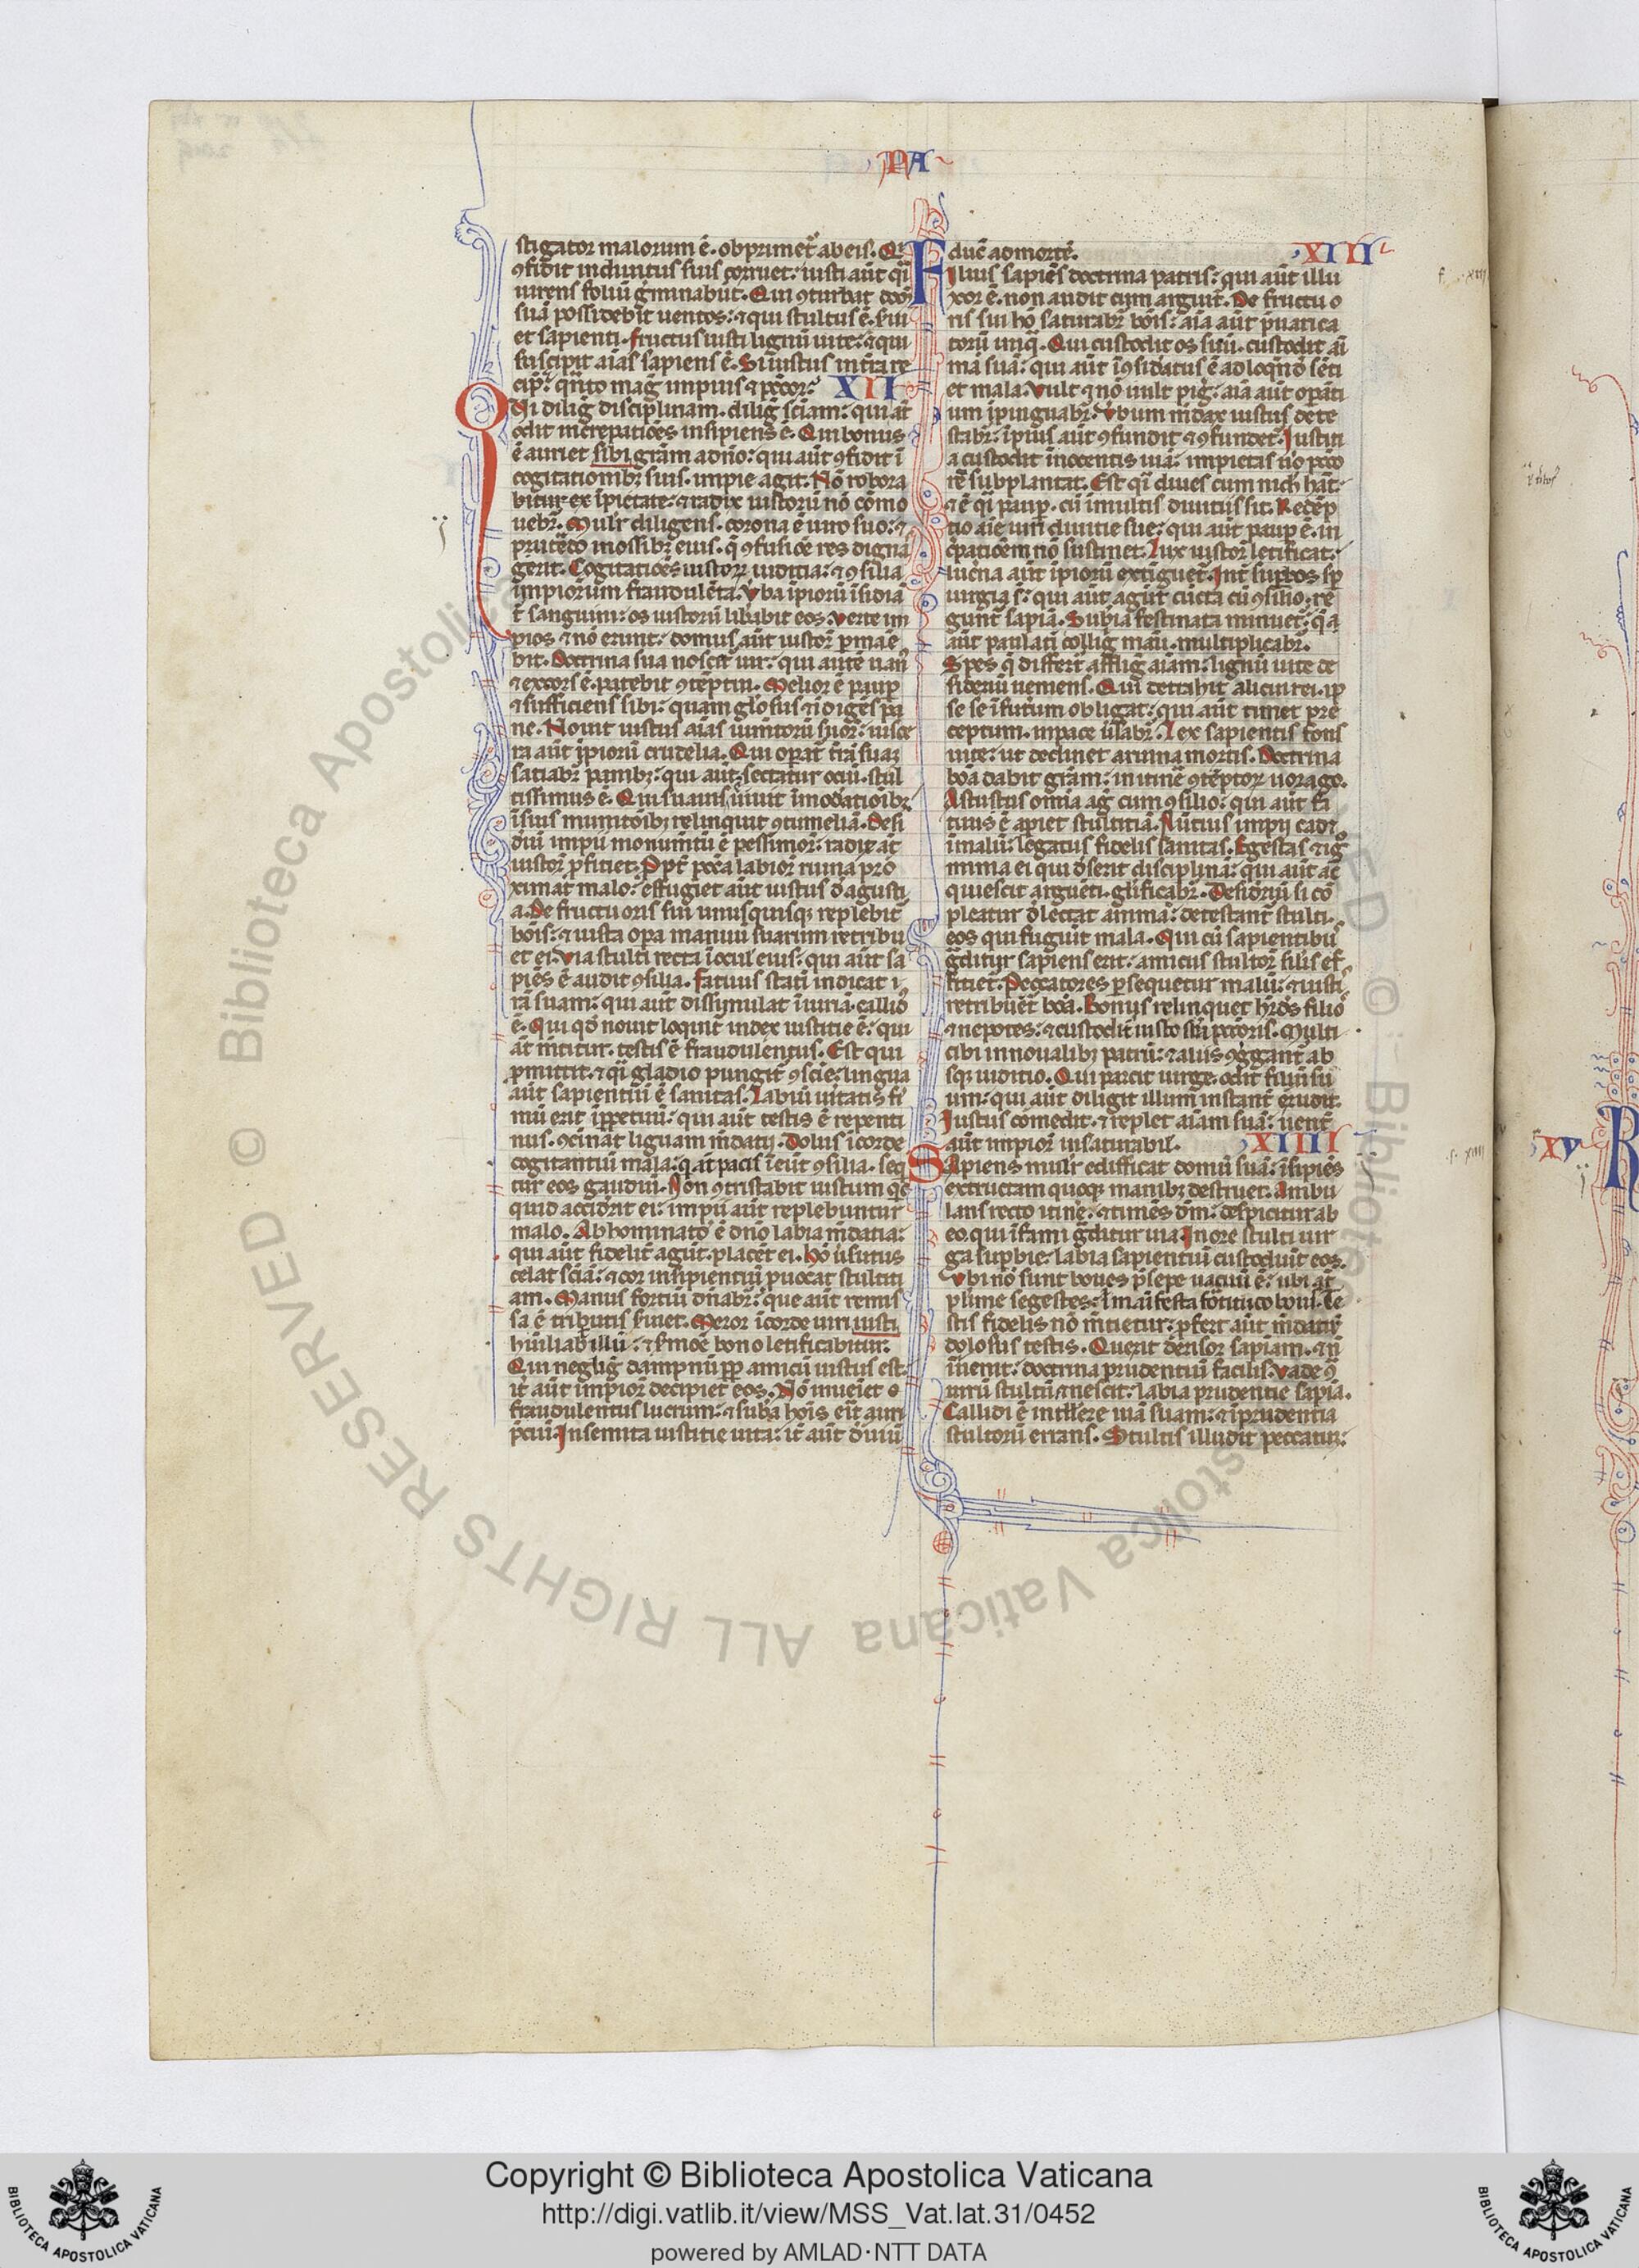 PA
stigator malorum ē. obprimet᷑ ab eis. Qi
ꝯfidit in diuitiis suis corruet: iusti aūt q̄i
uirens foliū gͥminabūt. Qui ꝯturbat domū
suā possidebit uentos: ⁊ qui stultus ē. s̄uiet
et sapienti. fructus iusti lignū uite: ⁊ qui
suscipit aīas sapiens ē. Si iustus in t̄ra re
cip̄: qͣnto mag̃ impius ⁊ pccōr. XII
Qui dilig̃ disciplinam. dilig̃ sc̄iam: qui āt
odit increpatiōes insipiens ē. Qui bonus
ē auriet sibi gr̄am a dn̄o: qui aūt ꝯfidit ī
cogitationibꝫ suis. impie agit. Nō robora
bitur ex īpietate: ⁊ radix iustorū nō cōmo
uebr̄. Mulr̄ diligens. corona ē uiro suo: ⁊
putredo in ossibꝫ eius. q̄ ꝯfusiōe res dignā
gerit. Cogitatiōes iustoꝝ iuditia: ⁊ ꝯsilia
impiorum fraudulēta. Vba īpiorū īsidiā
t̄ sanguini: os iustorū libabit eos. Verte im
pios ⁊ nō erunt: domus aūt iustor̄ p̱manē
bit. Doctrina sua noscet᷑ uir: qui autē uanꝰ
⁊ excors ē. patebit ꝯtēptui. Melior ē paup̱
⁊ sufficiens sibi: quam gl̄osus ⁊ īdigēs pa
ne. Nouit iustus aīas iumtorū suor̄: uisce
ra aūt īpiorū crudelia. Qui opat᷑ t̄rā suaꝫ
satiabr̄ panibꝫ: qui aūt sectatur ociū. stul
tissimus ē. Qui suauis uiuit ī modatiōibꝫ
ī suis munitōibꝫ relinquit ꝯtumeliā. Desi
diū impii monumtū ē pessimor̄: radix āt
iustor̄ p̱ficiet. Ppt̄ pccā labior̄ ruina pro
ximat malo: effugiet aūt iustus d̄ agusti
a. De fructu oris sui unusquisqꝫ replebit᷑
bōis: ⁊ iusta opa manuū suarum retribu
et᷑ ei. Via stulti recta ī ocul̄ eius: qui aūt sa
piēs ē audit ꝯsilia. Fatuus statī indicat i
rā suam: qui aūt dissimulat īiuriā. callidꝰ
ē. Qui qd̄ nouit loquit᷑ index iustitie ē: qui
āt mtitur. testis ē fraudulentus. Est qui
p̱mittit. ⁊ q̄i gladio pungit᷑ ꝯscie: lingua
aūt sapientiū ē sanitas. Labiū uitatis fi
mū erit īp̱petuū: qui aūt testis ē repenti
nus. ꝯcinat līguam mdatii. Dolus ī corde
cogitantiū mala: q̄ āt pacis īeūt ꝯsilia. seq̄
tur eos gaudiū. Non ꝯtristabit iustum qͥc
quid accid̄it ei: impii aūt replebuntur
malo. Abhominato ē dn̄o labia mdatia:
qui aūt fidelit᷑ agūt. placēt ei. Ho ūsutus
celat sc̄iā: ⁊ cor insipientiū puocat stultiti
am. Manus fortiū dn̄abr̄: que aūt remis
sa ē tributis s̄uiet. Meror ī corde uiri iusti
hūiliabͥ illū: ⁊ s̄moe bono letificabitur.
Qui neglig̃ dampnū pp̱ amicū iustus est:
it᷑ aūt impior̄ decipiet eos. Nō inueiet
fraudulentus lucrum: ⁊ subā hōis erit auri
p̄ciū. In semita iustitie uita: it᷑ aūt deuiū
ducē ad morte. XIII
Filius sapiēs doctrina patris: qui aūt illu
xor ē. non audit cum arguit᷑. De fructu o
ris sui ho saturabr̄ bōis: aīa aūt p̄uarica
torū iniq̄. Qui custodit os suū. custodit aī
mā suā: qui aūt īꝯsidatus ē ad loqn̄d sēti
et mala. Vult ⁊ nō uult pig̃: aīa aūt opāti
um īpinguabr̄. Vbum mdax iustus dete
stabr̄: īpius aūt ꝯfundit ⁊ ꝯfundet᷑. Iustiti
a custodit inocentis uiā: impietas ūo pccō
rē subplantat. Est q̄i diues cum nich̄ hāt:
⁊ ē q̄i paup̱. cū ī multis diuitiis sit. Redēp
tio aīe uiri diuitie sue: qui aūt paup̱ ē. in
cͥpatiōem nō sustinet. Lux iustor̄ letificat:
lucna aūt īpiorū extīguet᷑. Int̄ sup̱bos sp̱
iurgia s̄: qui aūt agūt cūcta cū ꝯsilio. re
gunt᷑ sapiā. Subīa festinata minuet᷑: q̄
aūt paulatī collig̃ manū. multiplicabr̄.
Spes q̄ differt᷑ afflig̃ aīam: lignū uite de
sideriū ueniens. Qui detrahit alicui rei. ip̱
se se ī futurum obligat: qui aūt timet pre
ceptum. in pace ūsabr̄. Lex sapientis fons
uite: ut declinet a ruina mortis. Doctrina
boā dabit gr̄am: in itine ꝯtēptoꝝ uorago.
Astustus omīa ag̃ cum ꝯsilio: qui aūt fa
tuus ē apiet stultitiā. Nūtius impii cadꝫ
ī malū: legatus fidelis sanitas. Egestas ⁊ ig
minia ei qui d̄serit disciplinā: qui aūt ac
quiescit arguēti. gl̄ificabr̄. Desideriū si cō
pleatur d̄lectat animā: detestant᷑ stulti.
eos qui fugiūt mala. Qui cū sapientibꝰ
gͣditur sapiens erit: amicus stultor̄ silis ef
ficiet᷑. Peccatores p̱sequetur malū: ⁊ iustꝭ
retribuēt᷑ boā. Bonus relinquet h̄rd̄s filiō
⁊ nepotes: ⁊ custodit᷑ iusto s̄ba pccōris. Multi
cibi in noualibꝫ patrū: ⁊ aliis ꝯggant᷑ ab
sqꝫ iuditio. Qui parcit uirge. odit filiū su
um: qui aūt diligit illum instant᷑ erudit.
Iustus comedit. ⁊ replet aīam suā: uent᷑
aūt impior̄ insaturabil̄. XIIII
Sapiens mulr̄ edifficat domū suā: īsipiēs
extructam quoqꝫ manibꝫ destruet. Ambu
lans recto itine. ⁊ timēs dm̄: despicitur ab
eo. qui īfami gͣditur uia. In ore stulti uir
ga sup̱bie: labia sapientiū custodiūt eos.
Vbi nō sunt boues p̄sepe uacuū ē: ubi āt
plime segetes: ī maīfesta fortitudo bouis. Te
stis fidelis nō mtietur: p̱fert aūt mdatiū
dolosus testis. Querit d̄risor sapiam. ⁊ n̄
īuenit: doctrina prudentiū facilis. Vade ꝯ
untrū stultū ⁊ nescit: labia prudentie sapiā.
Callidi ē intll̄ere uiā suam: ⁊ īprudentia
stultorū errans. Stultis illudit peccatū:
XV
R
Biblioteca Apostolica Vaticana ALL RIGHTS RESERVED ©
Copyright © Biblioteca Apostolica Vaticana
http://digi.vatlib.it/view/MSS_Vat.lat.31/0452
powered by AMLAD·NTT DATA
BIBLIOTECA APOSTOLICA VATICANA
BIBLIOTECA APOSTOLICA VATICANA